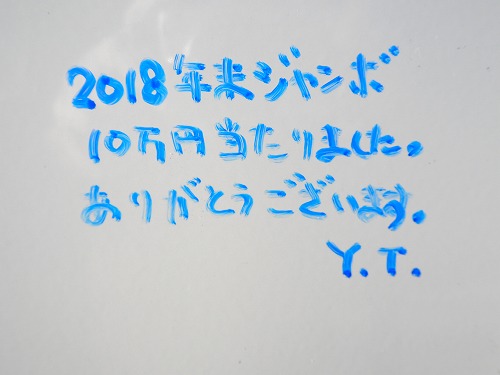 2018年末ジャンボ
10万円当たりました。
ありがとうございます。
Y.T.